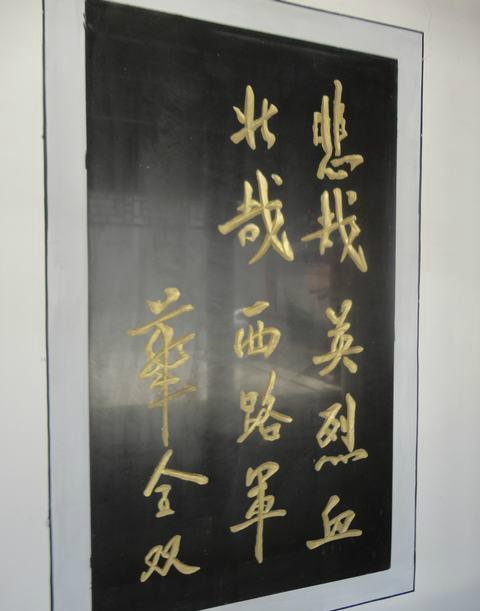 悲哉英烈血
壮哉西路軍
華全双